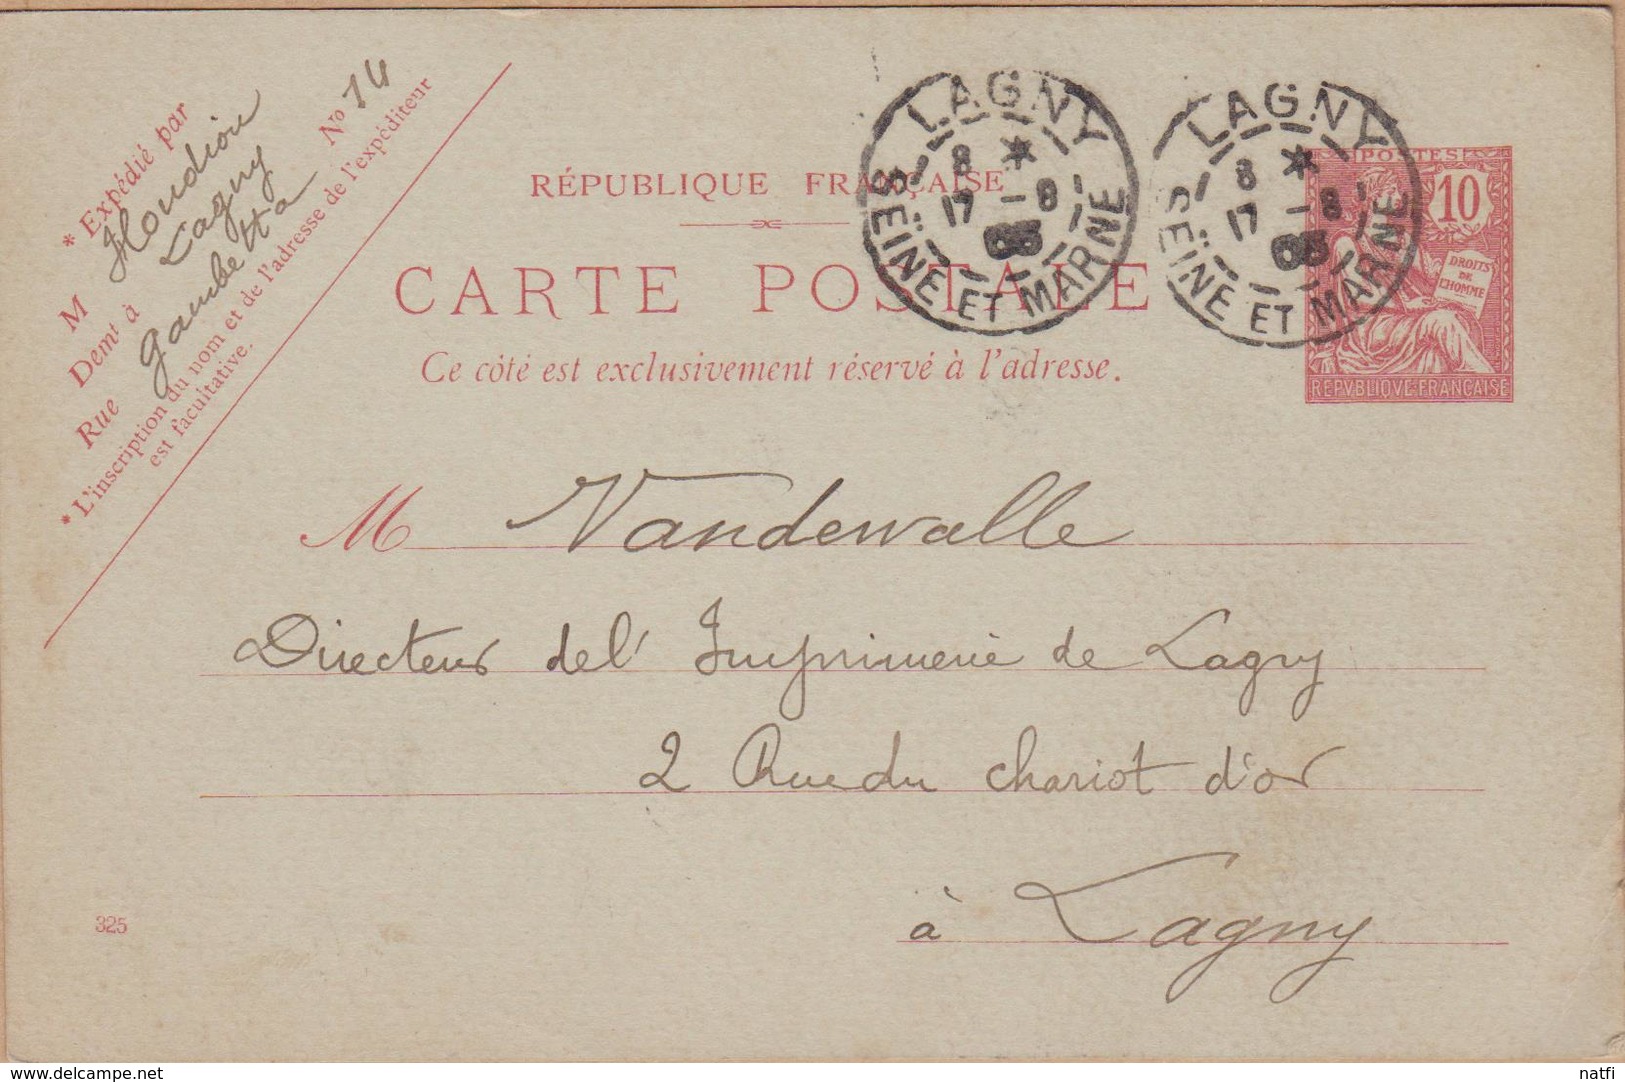 * Expédié par
M Houdion
Demt à Lagny
Rue Gambetta No 14
* L'inscription du nom et de l'adresse de l'expéditeur
est facultative.
RÉPUBLIQUE FRANÇAISE
CARTE POSTALE
Ce côté est exclusivement réservé à l'adresse.
LAGNY
8 *
17 - 8
SEINE ET MARNE
LAGNY
8 *
17 - 8
SEINE ET MARNE
POSTES
10
DROITS
DE
L'HOMME
REPVBLIQVE FRANÇAISE
M Vandewalle
Directeur de l'Imprimerie de Lagny
2 Rue du chariot d'or
à Lagny
325
www.delcampe.net
natfi